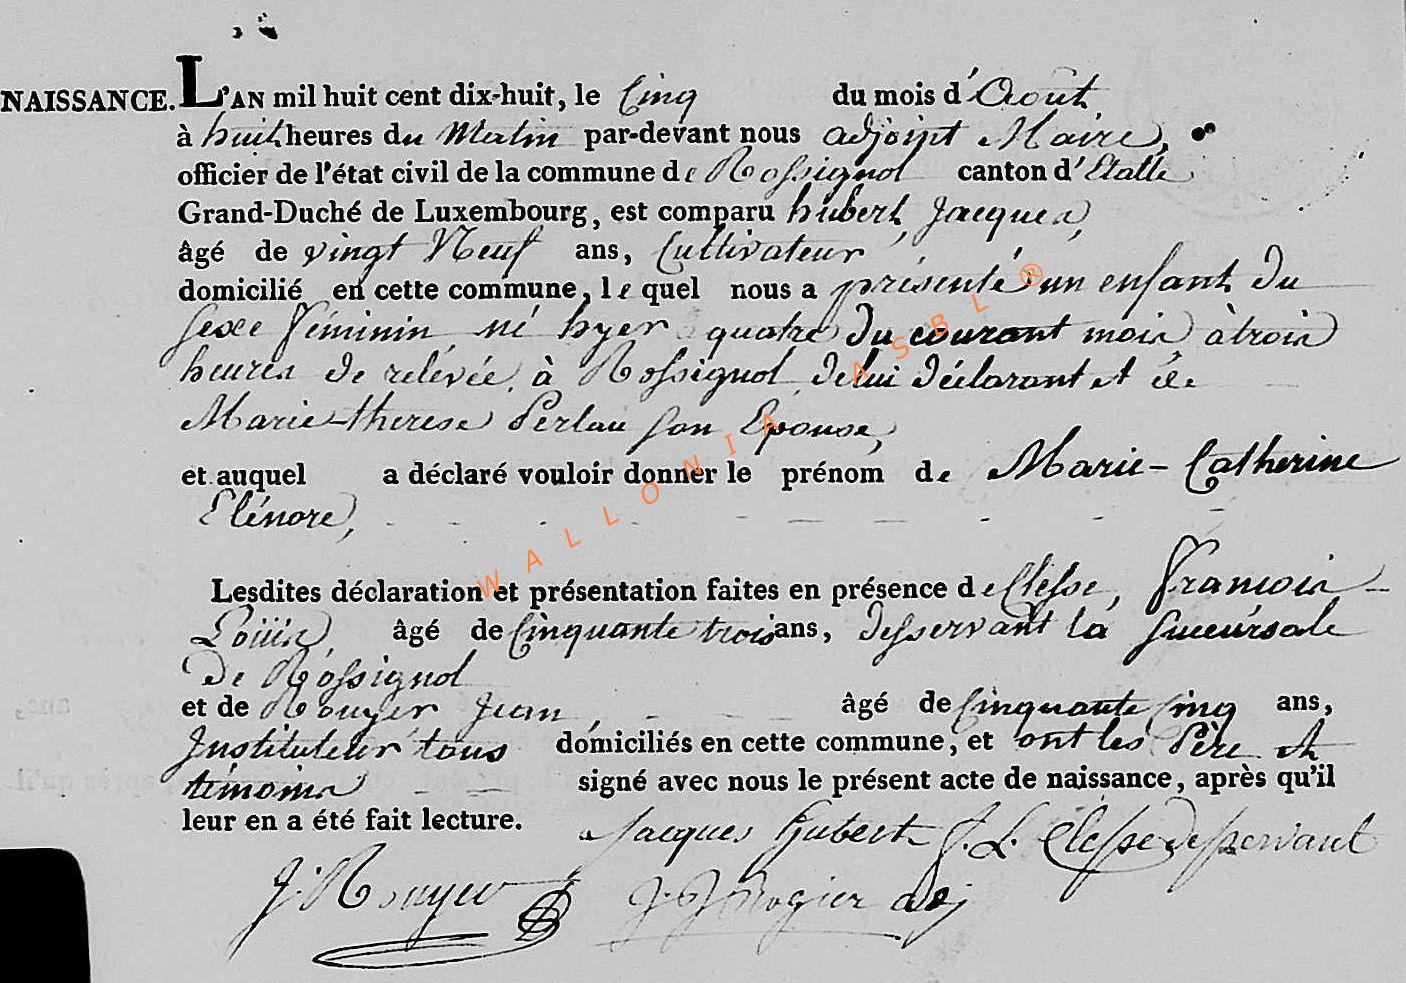 NAISSANCE. L'AN mil huit cent dix-huit, le Cinq du mois d'Aout
à huit heures du Matin par-devant nous adjoint Maire,
officier de l'état civil de la commune de Rossignol canton d'Etalle
Grand-Duché de Luxembourg, est comparu hubert, Jacques,
âgé de vingt Neuf ans, Cultivateur
domicilié en cette commune, le quel nous a présenté un enfant du
sexe féminin né hyer quatre du courant mois à trois
heures de relevée, à Rossignol de lui déclarant et de
Marie-therese Perlau son Epouse,
et auquel a déclaré vouloir donner le prénom de Marie-Catherine
Elénore,
Lesdites déclaration et présentation faites en présence de Clesse, François
Loüis, âgé de Cinquante trois ans, desservant la succursale
de Rossignol
et de Rouyer Jean, âgé de Cinquante Cinq ans,
Instituteur tous domiciliés en cette commune, et ont les Père et
témoins signé avec nous le présent acte de naissance, après qu'il
leur en a été fait lecture.
Jacques Hubert f. L. Clesse desservant
J. Rouyer J. J. Rogier adj
WALLONIA ASBL ®